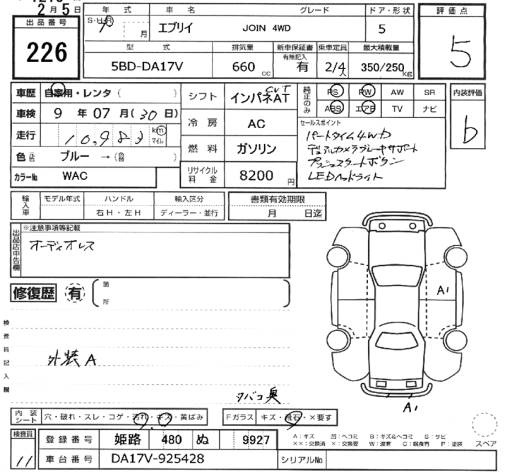 2月5日
出品番号
226
年式
S・H・R 7年 月
車名
エブリイ
グレード
JOIN 4WD
ドア・形状
5
評価点
5
型式
5BD-DA17V
排気量
660 cc
新車保証書
有無記入
有
乗車定員
2/4人
最大積載量
350/250kg
車歴 自家用・レンタ・( )
車検 9年 07月(30日)
走行 10,983 km マイル
色 ブルー →( )
カラーNo WAC
シフト インパネCVT AT
冷房 AC
燃料 ガソリン
リサイクル料金 8200円
純正のみ
PS PW AW SR
ABS エアB TV ナビ
内装評価
b
セールスポイント
パートタイム4WD
デュアルカメラブレーキサポート
プッシュスタートボタン
LEDヘッドライト
輸入車
モデル年式 ハンドル 輸入区分
右H・左H ディーラー・並行
書類有効期限
月 日迄
出品店申告欄
※注意事項等記載
オーディオレス
修復歴 有 箇所
検査員記入欄
外装A
タバコ臭
A1
A1
内装シート 穴・破れ・スレ・コゲ・汚れ・キズ・黄ばみ
Fガラス キズ・飛石・×要す
検査員
11
登録番号 姫路 480 ぬ 9927
車台番号 DA17V-925428
シリアルNo
スペア